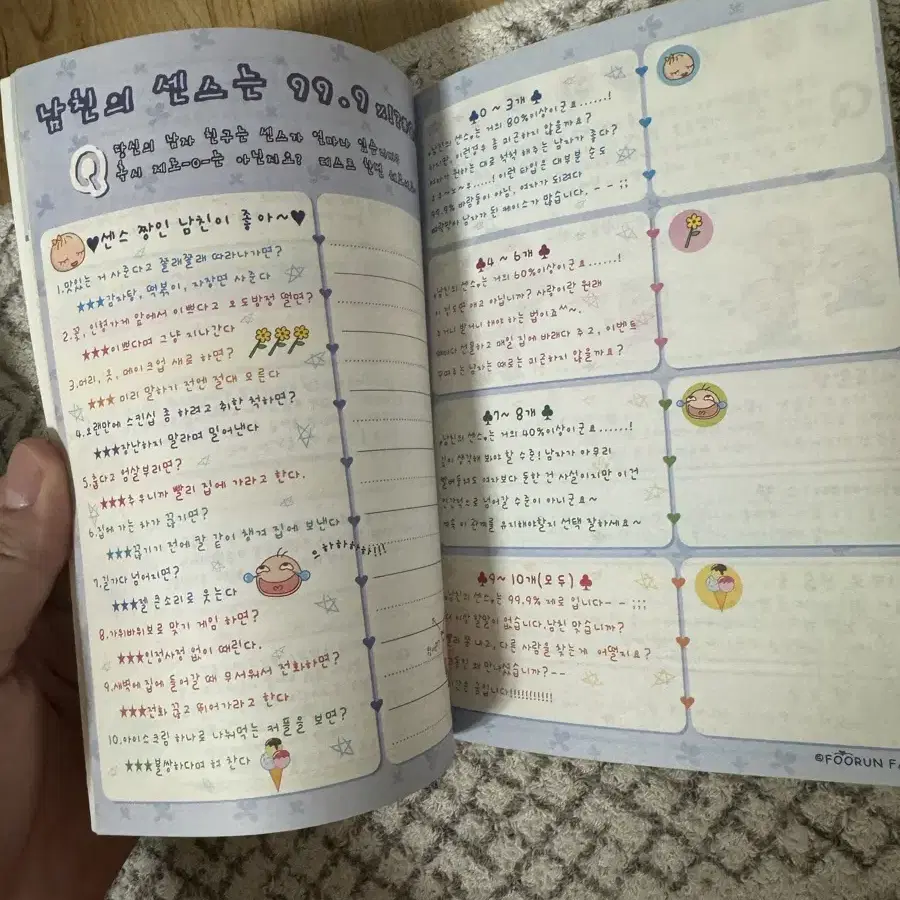 남친의 센스는 99.9
Q 당신의 남자 친구는 센스가 얼마나
혹시 제로-0-는 아닌지요? 테스트 한번
♥센스 짱인 남친이 좋아~♥
1.맛있는 거 사준다고 쫄래쫄래 따라나가면?
★★★감자탕, 떡볶이, 자장면 사준다
2.꽃, 인형가게 앞에서 이쁘다고 오도방정 떨면?
★★★이쁘다며 그냥 지나간다
3.머리, 옷, 메이크업 새로 하면?
★★★ 미리 말하기 전엔 절대 모른다
4.오랜만에 스킨십 좀 하려고 취한 척하면?
★★★장난하지 말라며 밀어낸다
5.춥다고 엄살부리면?
★★★추우니까 빨리 집에 가라고 한다.
6.집에 가는 차가 끊기면?
★★★끊기기 전에 칼 같이 챙겨 집에 보낸다
7.길가다 넘어지면?
★★★젤 큰소리로 웃는다
으하하하하!!!
8.가위바위보로 맞기 게임 하면?
★★★인정사정 없이 때린다.
9.새벽에 집에 들어갈 때 무서워서 전화하면?
★★★전화 끊고 뛰어가라고 한다
10.아이스크림 하나로 나눠먹는 커플을 보면?
★★★불쌍하다며 혀 찬다
♣0 ~ 3개 ♣
남친의 센스는 거의 80%이상이군요......!
이런경우 좀 피곤하지 않을까요?
원하는 대로 척척 해주는 남자가 좋다?
이런 타입은 대부분 순도
99.9% 바람둥이 아님, 여자가 되려다
남자가 된 케이스가 많습니다. - - ;;
♣4 ~ 6개 ♣
남친의 센스는 거의 60%이상이군요......!
이 정도면 애교 아닙니까? 사랑이란 원래
해야 하는 법이죠^^~.
선물하고 매일 집에 바래다 주고, 이벤트
남자는 때로는 피곤하지 않을까요?
♣7~ 8개 ♣
남친의 센스는 거의 40%이상이군요......!
생각해 봐야 할 수준! 남자가 아무리
여자보다 둔한 건 사실이지만 이건
넘어갈 수준이 아니군요~
이 관계를 유지해야할지 선택 잘하세요~
♣9~ 10개(모두) ♣
남친의 센스는 99.9% 제로 입니다- - ;;;
더 이상 할말이 없습니다.남친 맞습니까?
내고, 다른 사람을 찾는게 어떨지요?
만나셨습니까?--
©FOORUN